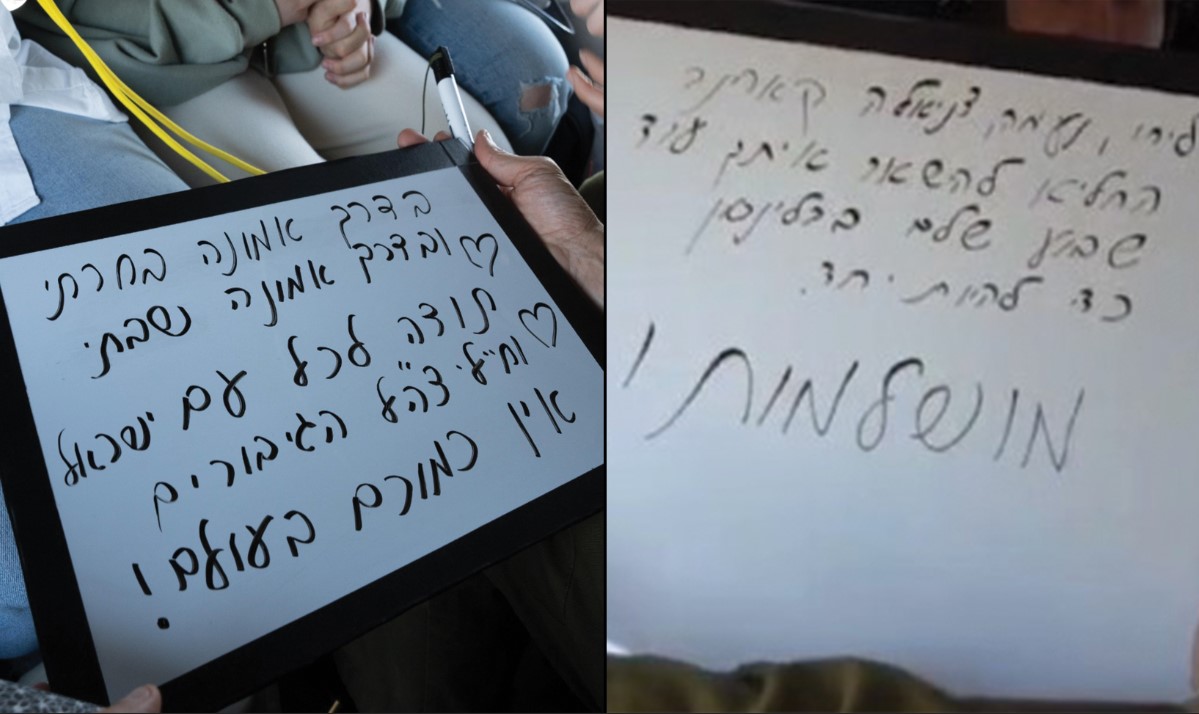 בדרך אמונה בחרתי
ובדרך אמונה שבתי
תודה לכל עם ישראל
וחיילי צה"ל הגיבורים
אין כמוכם בעולם!
לירי, נעמה, דניאלה קארינה
החליטו להשאר איתך עוד
שבוע שלם בבילינסון
כדי להיות יחד.
מושלמות!